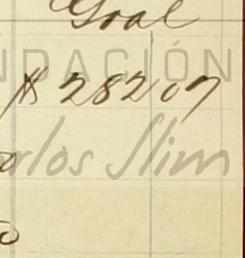 Goal
$ 282 07
NDACIÓN
rlos Slim